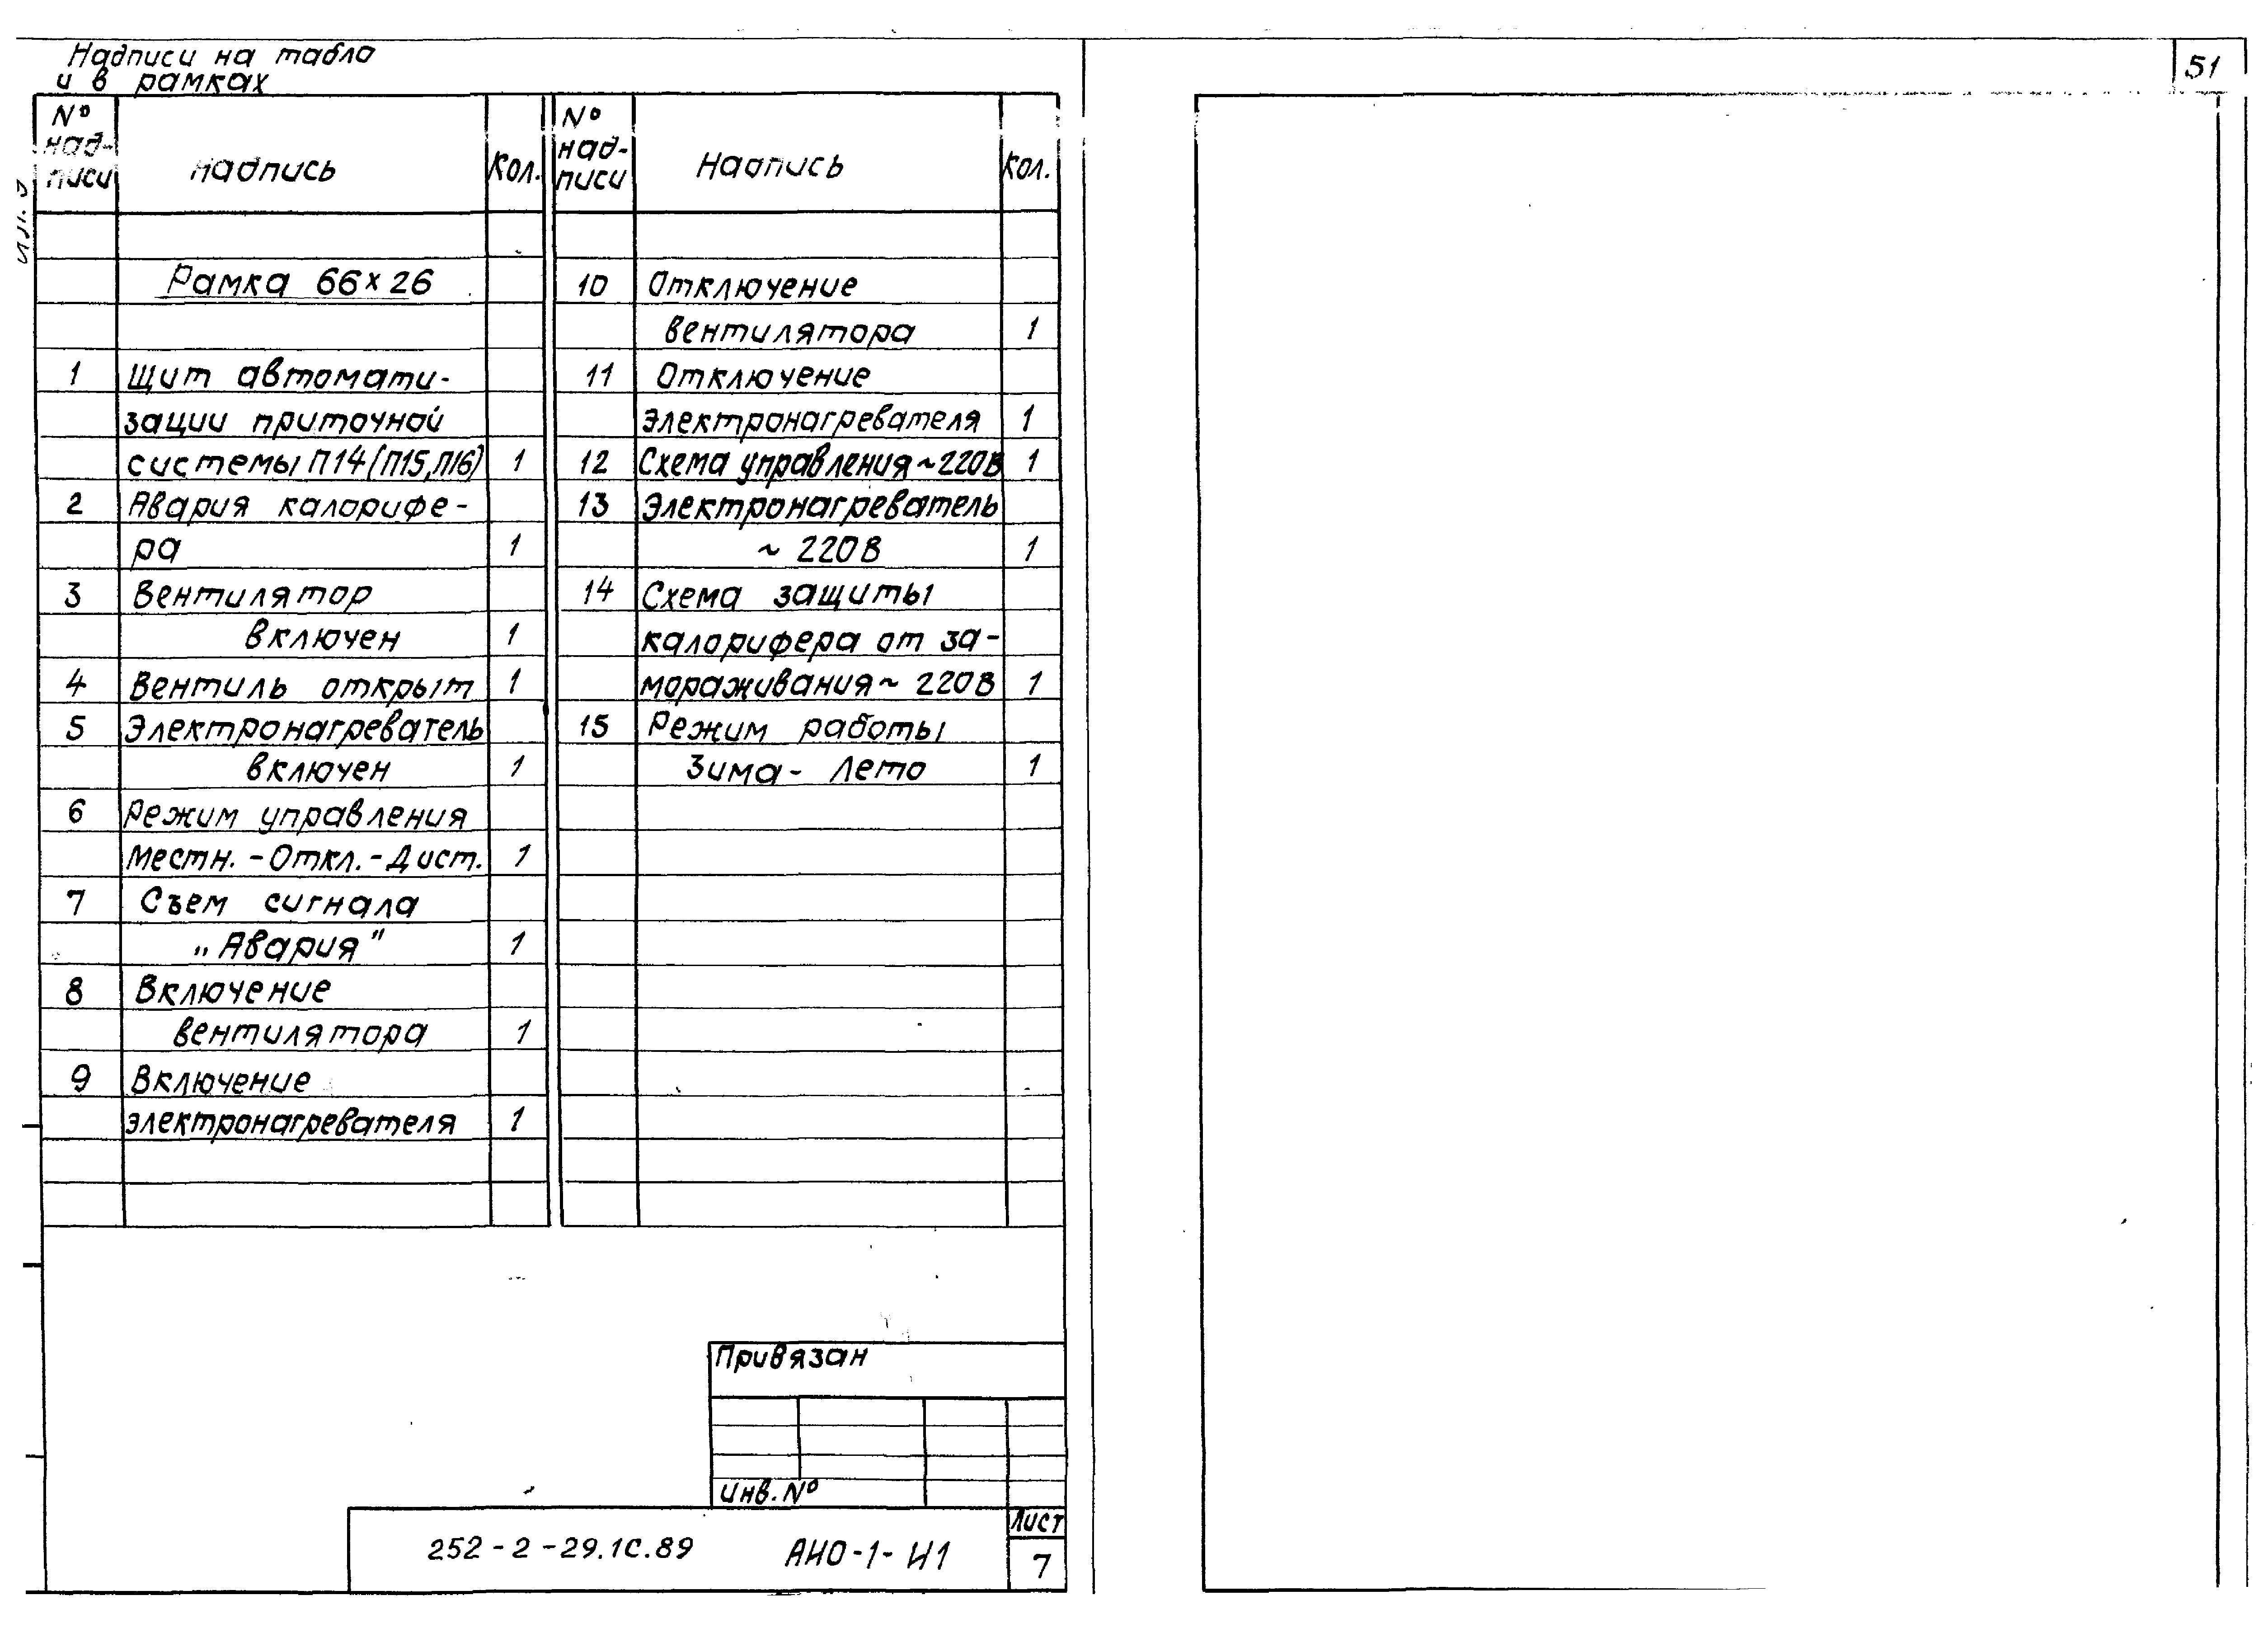 Надписи на табло
и в рамках
51
№
над-
писи
надпись
Кол.
№
над-
писи
Надпись
Кол.
Рамка 66х26
1 Щит автомати-
зации приточной
системы П14(П15,П16) 1
2 Авария калорифе-
ра 1
3 Вентилятор
включен 1
4 Вентиль открыт 1
5 Электронагреватель
включен 1
6 Режим управления
Местн.-Откл.-Дист. 1
7 Съем сигнала
„Авария" 1
8 Включение
вентилятора 1
9 Включение
электронагревателя 1
10 Отключение
вентилятора 1
11 Отключение
электронагревателя 1
12 Схема управления ~220В 1
13 Электронагреватель
~ 220В 1
14 Схема защиты
калорифера от за-
мораживания ~ 220В 1
15 Режим работы
Зима - Лето 1
Привязан
Инв. №
252-2-29.1С.89 АНО-1-И1
Лист
7